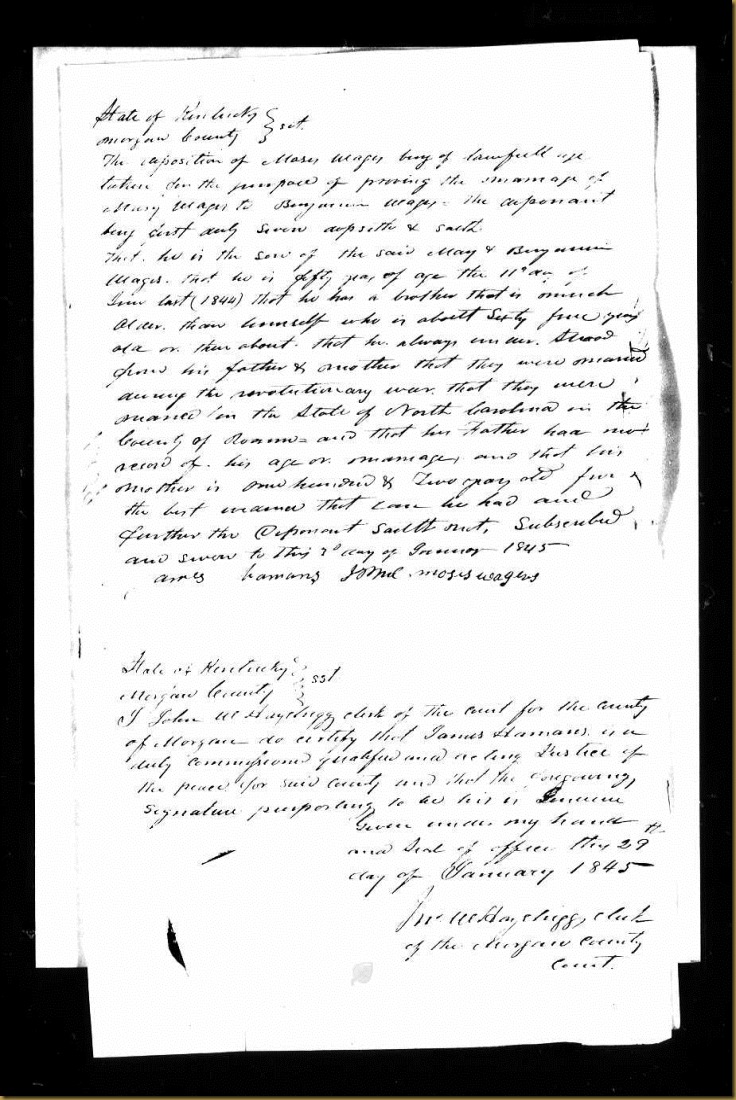 State of Kentucky } sct.
Morgan County
The deposition of Moses Wages being of lawfull age
taken for the purpose of proving the marriage of
Mary Wages to Benjamin Wages - the deponant
being first duly sworn deposith & saith
That he is the son of the said Mary & Benjamin
Wages. that he is fifty years of age the 11th day of
June last (1844) that he has a brother that is much
older than himself who is about Sixty five years
old or there about. that he always understood
from his father & mother that they were married
during the revolutionary war. that they were
married in the State of North Carolina in the
County of Rowan - and that his Father had no
record of his age or marriage, and that his
mother is one hundred & Two years old from
the best that can be had and
further the Deponant Saith not, Subscribed
and sworn to this 3d day of 1845
James hamans J P M C moses wagers
State of Kentucky } sst
Morgan County
I John W Hazelrigg clerk of the court for the county
of Morgan do certify that James Hamans is a
duly commissiond qualified and acting Justice of
the peace for said county and that the foregowing
signature purporting to be his is Genuine
Given under my hand
and Seal of office this 29th
day of January 1845
Jno. W Hazelrigg, clerk
of the Morgan County
Court.